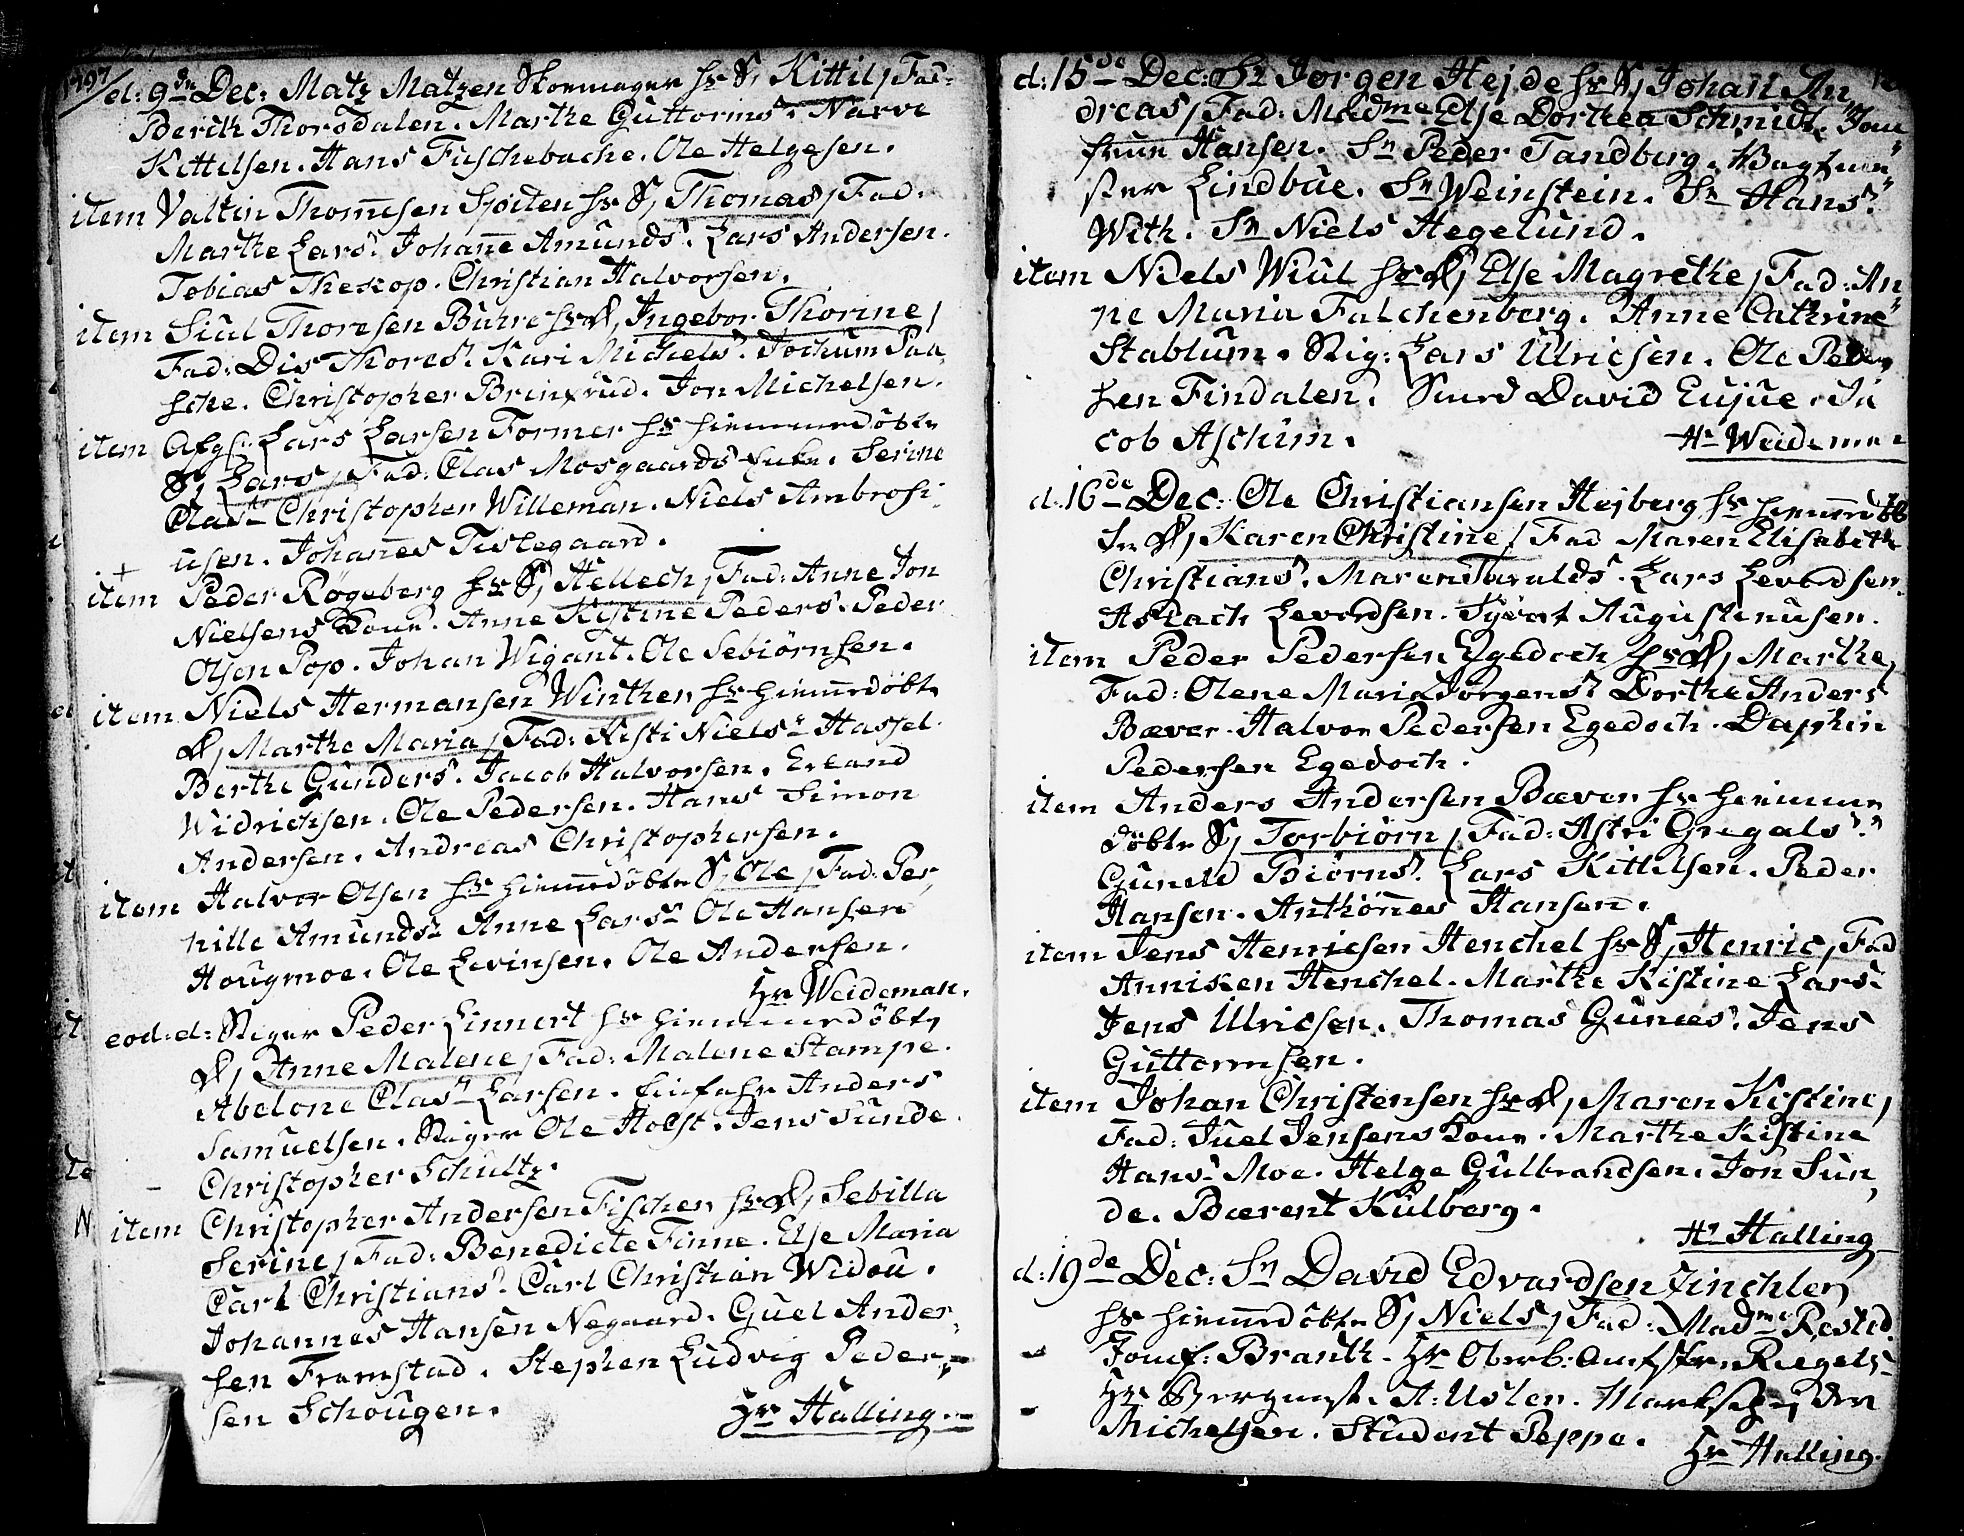 1797
d: 9de Dec: Matz Matzen Skoemager hs S, Kittil, Fad:
Berth Thorsdalen. Marthe Guttorms: Narve
Kittilsen. Hans Fuschebache. Ole Helgesen.
item Valtin Thomesen Sjoiten hs S, Thomas, Fad:
Marthe Lars: Johane Amunds: Lars Andersen.
Tobias Theskop. Christian Halvorsen.
item Siul Thoresen Buhre hs D, Ingebor Thorine,
Fad: Dis Thores: Kari Michels: Jochum Paa
sche. Christopher Brinxrud. Jon Michelsen.
item Afg: Lars Larsen Former hs hiemmedöbte
S, Lars, Fad: Clas Mosgaards Enke. Serine
Clas: Christopher Willeman. Niels Ambrosi
usen. Johanes Tislegaard.
item Peder Røgeberg hs S, Hellech, Fad: Anne Jon
Nielsens Kone. Anne Kistine Peders: Peder
Olsen Pop. Johan Wigant. Ole Sebiörnsen.
item Niels Hermansen Winther hs hiemmedöbte
D, Marthe Maria, Fad: Kisti Niels: Hassel
Berthe Gunders: Jacob Halvorsen. Erland
Widrichsen. Ole Pedersen. Hans Simon
Andersen. Andreas Christophersen.
item Halvor Olsen hs hiemmedöbte S, Ole, Fad: Per
nille Amunds: Anne Lars: Ole Hansen
Hougmoe. Ole Levinsen. Ole Andersen.
Hr Weideman.
eod: d: Stiger Peder Linnert hs hiemmedöbte
D, Anne Malene, Fad: Malene Stampe.
Abelone Clas: Larsen. Einfahr Anders
Samuelsen. Stiger Ole Holst. Jens Sunde.
Christopher Schultz.
item Christopher Andersen Fischer hs D, Sebilla
Serine, Fad: Benedicte Finne. Else Maria
Carl Christians: Carl Christian Widou.
Johannes Hansen Negaard. Guel Ander
sen Framstad. Stephen Ludvig Peder
sen Schougen. Hr Halling.
d: 15de Dec: Sr Jörgen Hejde hs S, Johan An
dreas, Fad: Madme Else Dorthea Schmidt. Jom
frue Hansen. Sr Peder Tandberg. Bogtme
ster Lindbüe. Sr Weinstein. Sr Hans
With. Sr Niels Hegelund.
item Niels Wiul hs D, Else Magrethe, Fad: An
ne Maria Falchenberg. Anne Cathrine
Stablum. Stig: Lars Ulricsen. Ole Peder
sen Findalen. Smed David Eujue. Ja
cob Aschim. Hr Weideman
d: 16de Dec: Ole Christiansen Hejberg hs hiemmedöb
te D, Karen Christine, Fad Maren Elisabeth
Christians: Maren Taralds: Lars Levordsen.
Aslach Levordsen. Syvert Augustinusen.
item Peder Pedersen Egedoch hs D, Marthe,
Fad: Olene Maria Jörgens: Dorthe Anders
Bæver. Halvor Pedersen Egedoch. Daphin
Pedersen Egedoch.
item Anders Andersen Bæver hs hiemme
döbte S, Torbiörn, Fad: Astri Gregals:
Gunild Biörns: Lars Kittilsen. Peder
Hansen. Anthönes Hansen.
item Jens Henricsen Henchel hs S, Henric, Fad
Annisken Henchel. Marthe Kistine Lars:
Jens Ulricsen. Thomas Gunnes: Jens
Guttormsen.
item Johan Christensen hs D, Maren Kistine,
Fad: Juel Jensens Kone. Marthe Kistine
Hans: Moe. Helge Gulbrandsen. Jon Sun
de. Bærent Kulberg.
Hr Halling
d: 19de Dec: Sr David Edvardsen Zinchler,
hs hiemmedöbte S, Niels, Fad: Madme Rested.
Jomf: Branth. Hr Oberb: Amtsfr: Riegels
Hr Bergmest. A: Uslen.
Michelsen. Student Peppe. Hr Halling.